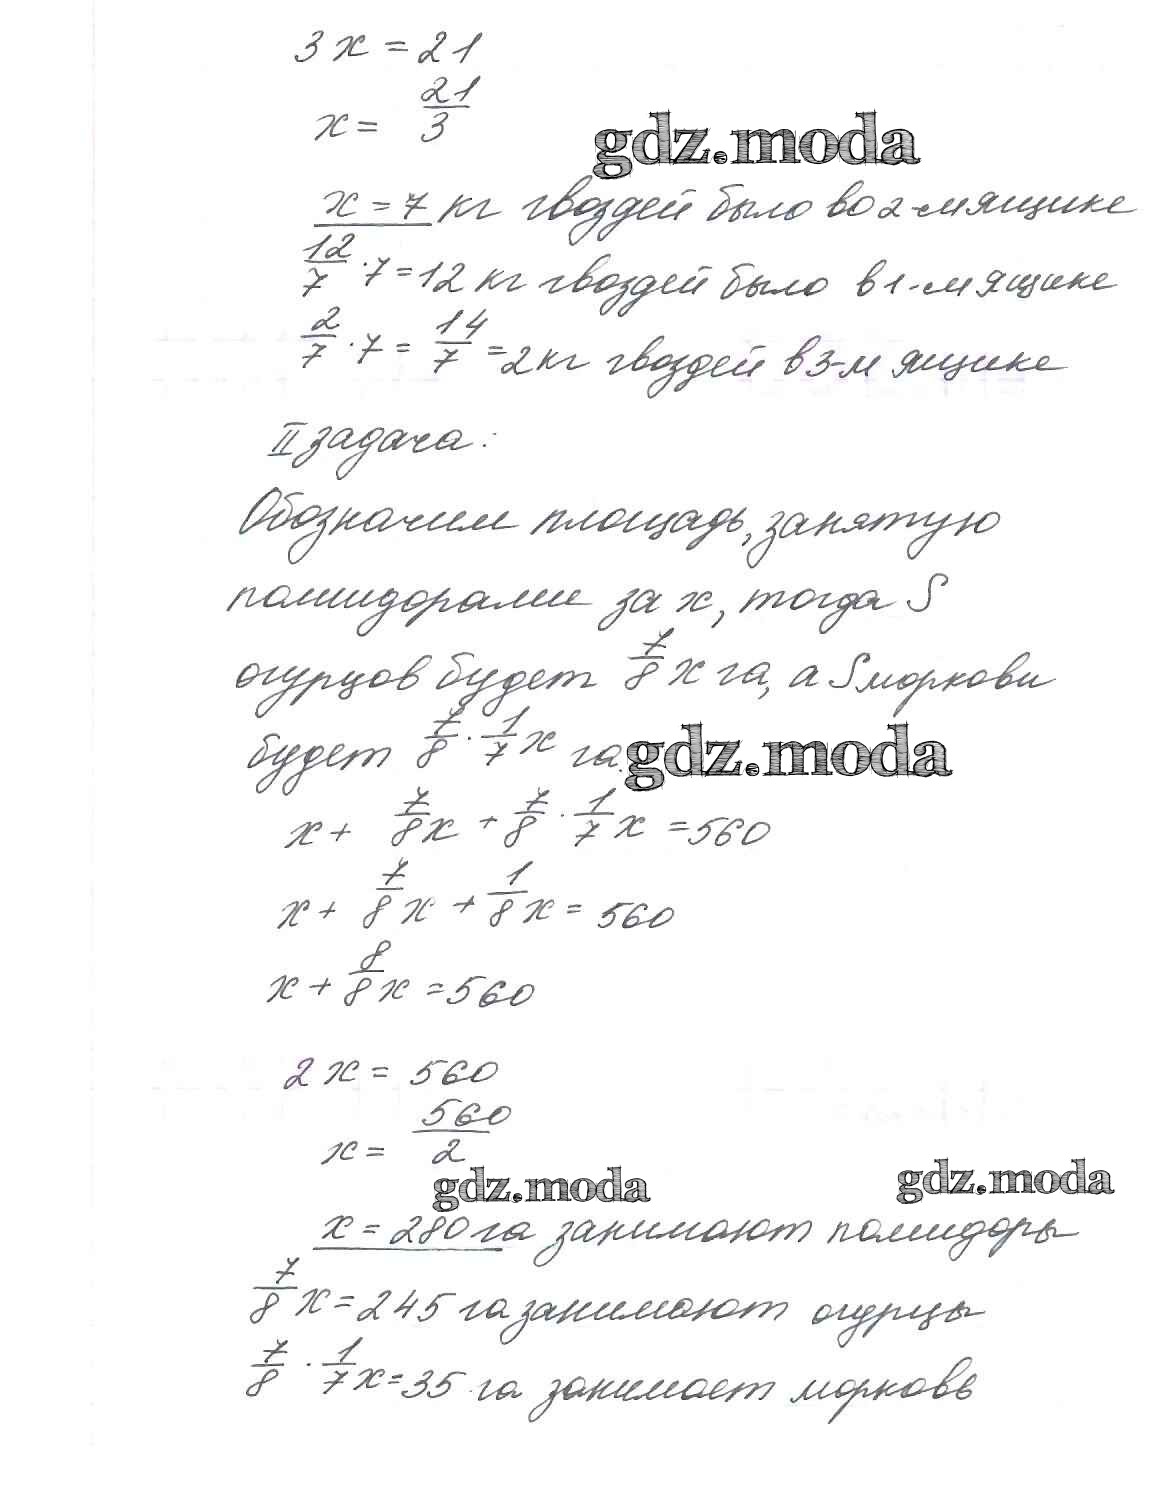 3x = 21
x = 21/3
gdz.moda
x = 7 кг гвоздей было во 2-м ящике
12/7 · 7 = 12 кг гвоздей было в 1-м ящике
2/7 · 7 = 14/7 = 2 кг гвоздей в 3-м ящике
II задача:
Обозначим площадь, занятую
помидорами за x, тогда S
огурцов будет 7/8 x га, а S моркови
будет 7/8 · 1/7 x га.
gdz.moda
x + 7/8 x + 7/8 · 1/7 x = 560
x + 7/8 x + 1/8 x = 560
x + 8/8 x = 560
2x = 560
x = 560/2
gdz.moda
gdz.moda
x = 280 га занимают помидоры
7/8 x = 245 га занимают огурцы
7/8 · 1/7 x = 35 га занимает морковь